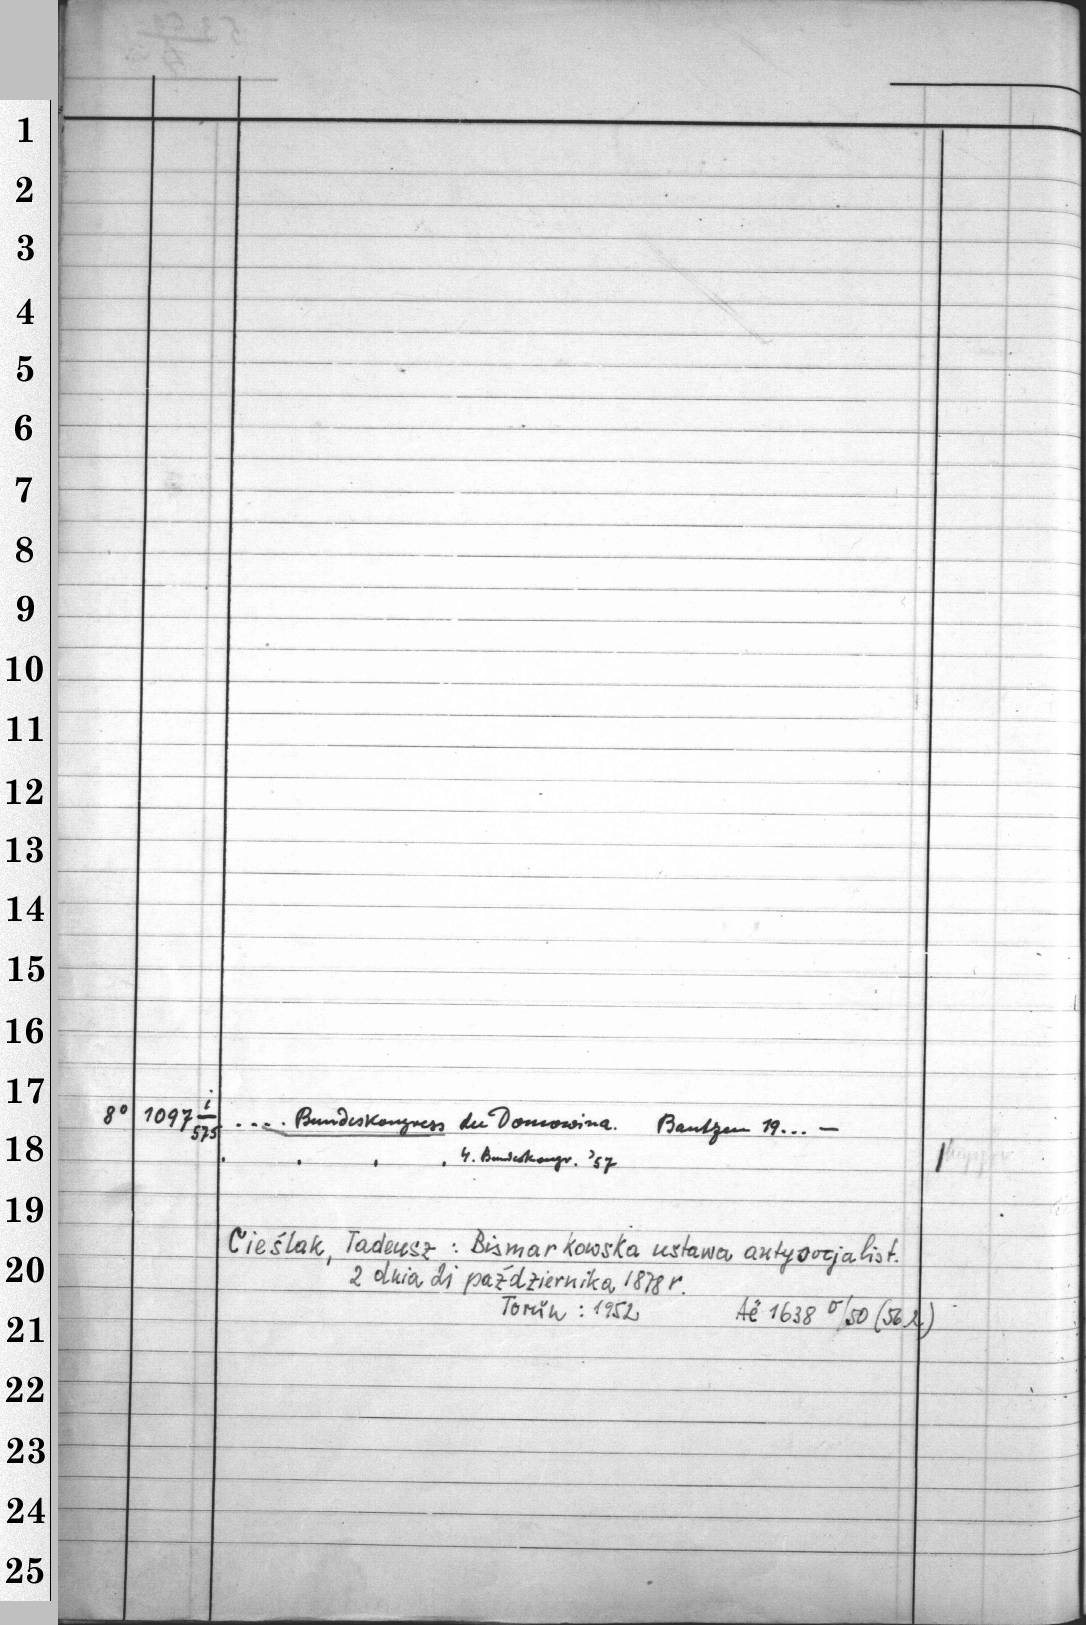 1
2
3
4
5
6
7
8
9
10
11
12
13
14
15
16
17
8° 1097 i/575 .... Bundeskongress der Domowina. Bautzen 19... —
18
. . . . 4. Bundeskongr. '57
19
Cieślak, Tadeusz : Bismarkowska ustawa antysocjalist.
20
2 dnia 21 października 1878 r.
Toruń : 1952 Aë 1638 σ/50 (56,2)
21
22
23
24
25